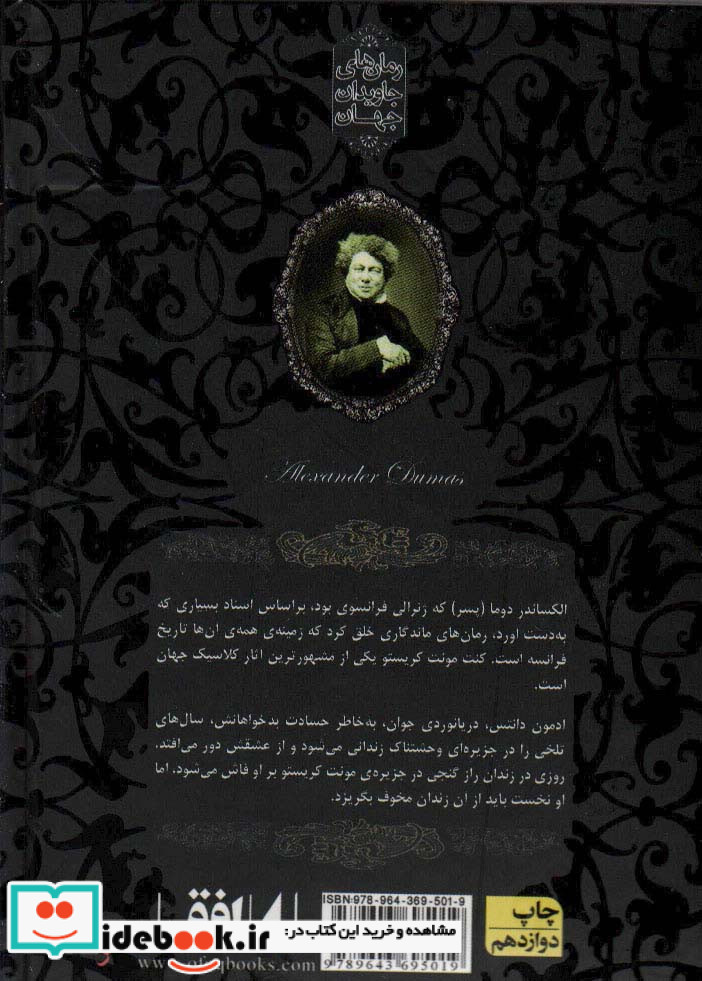 رمان‌های
جاویدان
جهان
Alexander Dumas
الکساندر دوما (پسر) که ژنرالی فرانسوی بود، براساس اسناد بسیاری که
به‌دست آورد، رمان‌های ماندگاری خلق کرد که زمینه‌ی همه‌ی آن‌ها تاریخ
فرانسه است. کنت مونت کریستو یکی از مشهورترین آثار کلاسیک جهان
است.
ادمون دانتس، دریانوردی جوان، به‌خاطر حسادت بدخواهانش، سال‌های
تلخی را در جزیره‌ای وحشتناک زندانی می‌شود و از عشقش دور می‌افتد.
روزی در زندان راز گنجی در جزیره‌ی مونت کریستو بر او فاش می‌شود. اما
او نخست باید از آن زندان مخوف بگریزد.
چاپ
دوازدهم
ISBN:978-964-369-501-9
9 789643 695019
مشاهده و خرید این کتاب در:
idebook.ir